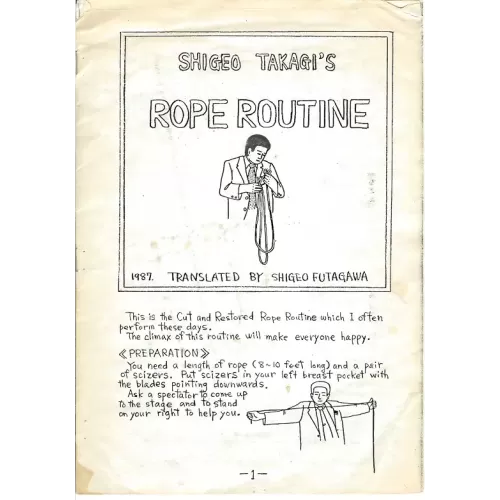 SHIGEO TAKAGI'S
ROPE ROUTINE
1987. TRANSLATED BY SHIGEO FUTAGAWA
This is the Cut and Restored Rope Routine which I often
perform these days.
The climax of this routine will make everyone happy.
《PREPARATION》
You need a length of rope (8~10 feet long) and a pair
of scizers. Put scizers in your left breast pocket with
the blades pointing downwards.
Ask a spectator to come up
to the stage and to stand
on your right to help you.
—1—